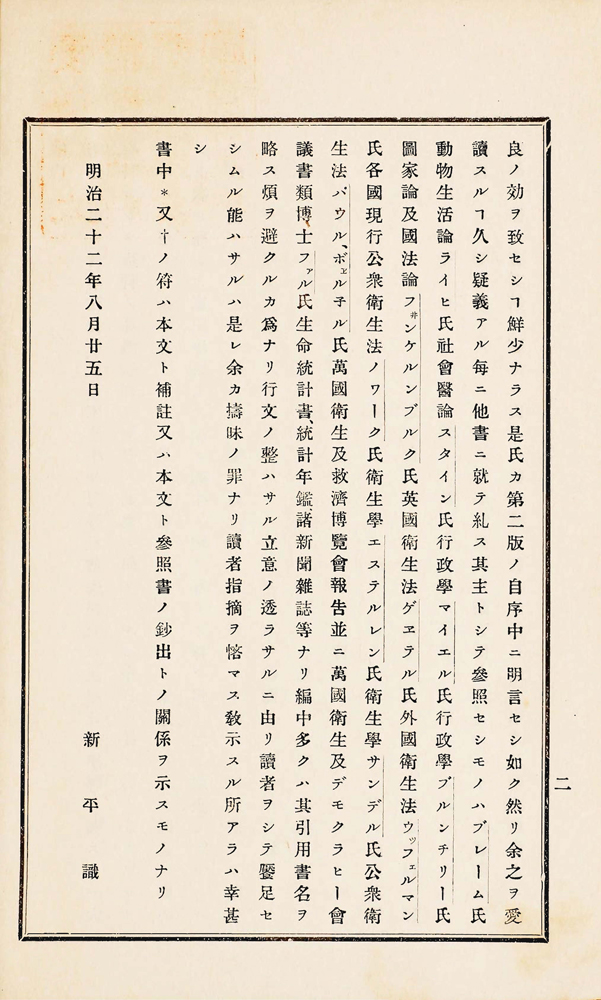 二
良ノ効ヲ致セシヿ鮮少ナラス是氏カ第二版ノ自序中ニ明言セシ如ク然リ余之ヲ愛
讀スルヿ久シ疑義アル每ニ他書ニ就テ糺ス其主トシテ參照セシモノハブレーム氏
動物生活論ライヒ氏社會醫論スタイン氏行政學マイエル氏行政學ブルンチリー氏
國家論及國法論フ井ンケルンブルク氏英國衛生法ゲヱテル氏外國衛生法ウッフェルマン
氏各國現行公衆衛生法ノワーク氏衛生學エステルレン氏衛生學サンデル氏公衆衛
生法バウル、ボェル子ル氏萬國衛生及救濟博覽會報告並ニ萬國衛生及デモクラヒー會
議書類博士ファル氏生命統計書、統計年鑑、諸新聞雜誌等ナリ編中多クハ其引用書名ヲ
略ス煩ヲ避クルカ爲ナリ行文ノ整ハサル立意ノ透ラサルニ由リ讀者ヲシテ饜足セ
シムル能ハサルハ是レ余カ擣昧ノ罪ナリ讀者指摘ヲ悋マス敎示スル所アラハ幸甚
シ
書中＊又†ノ符ハ本文ト補註又ハ本文ト參照書ノ鈔出トノ關係ヲ示スモノナリ
明治二十二年八月廿五日
新平識